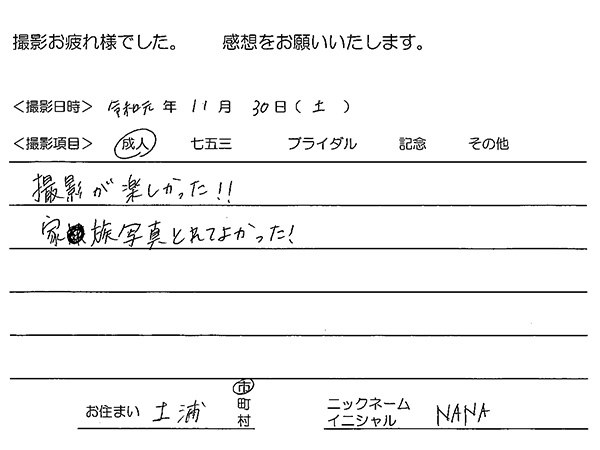 撮影お疲れ様でした。 感想をお願いいたします。
＜撮影日時＞ 令和元 年 11 月 30 日 ( 土 )
＜撮影項目＞ 成人 七五三 ブライダル 記念 その他
撮影が楽しかった!!
家族写真とれてよかった!
お住まい 土浦 市 町 村
ニックネーム イニシャル NANA